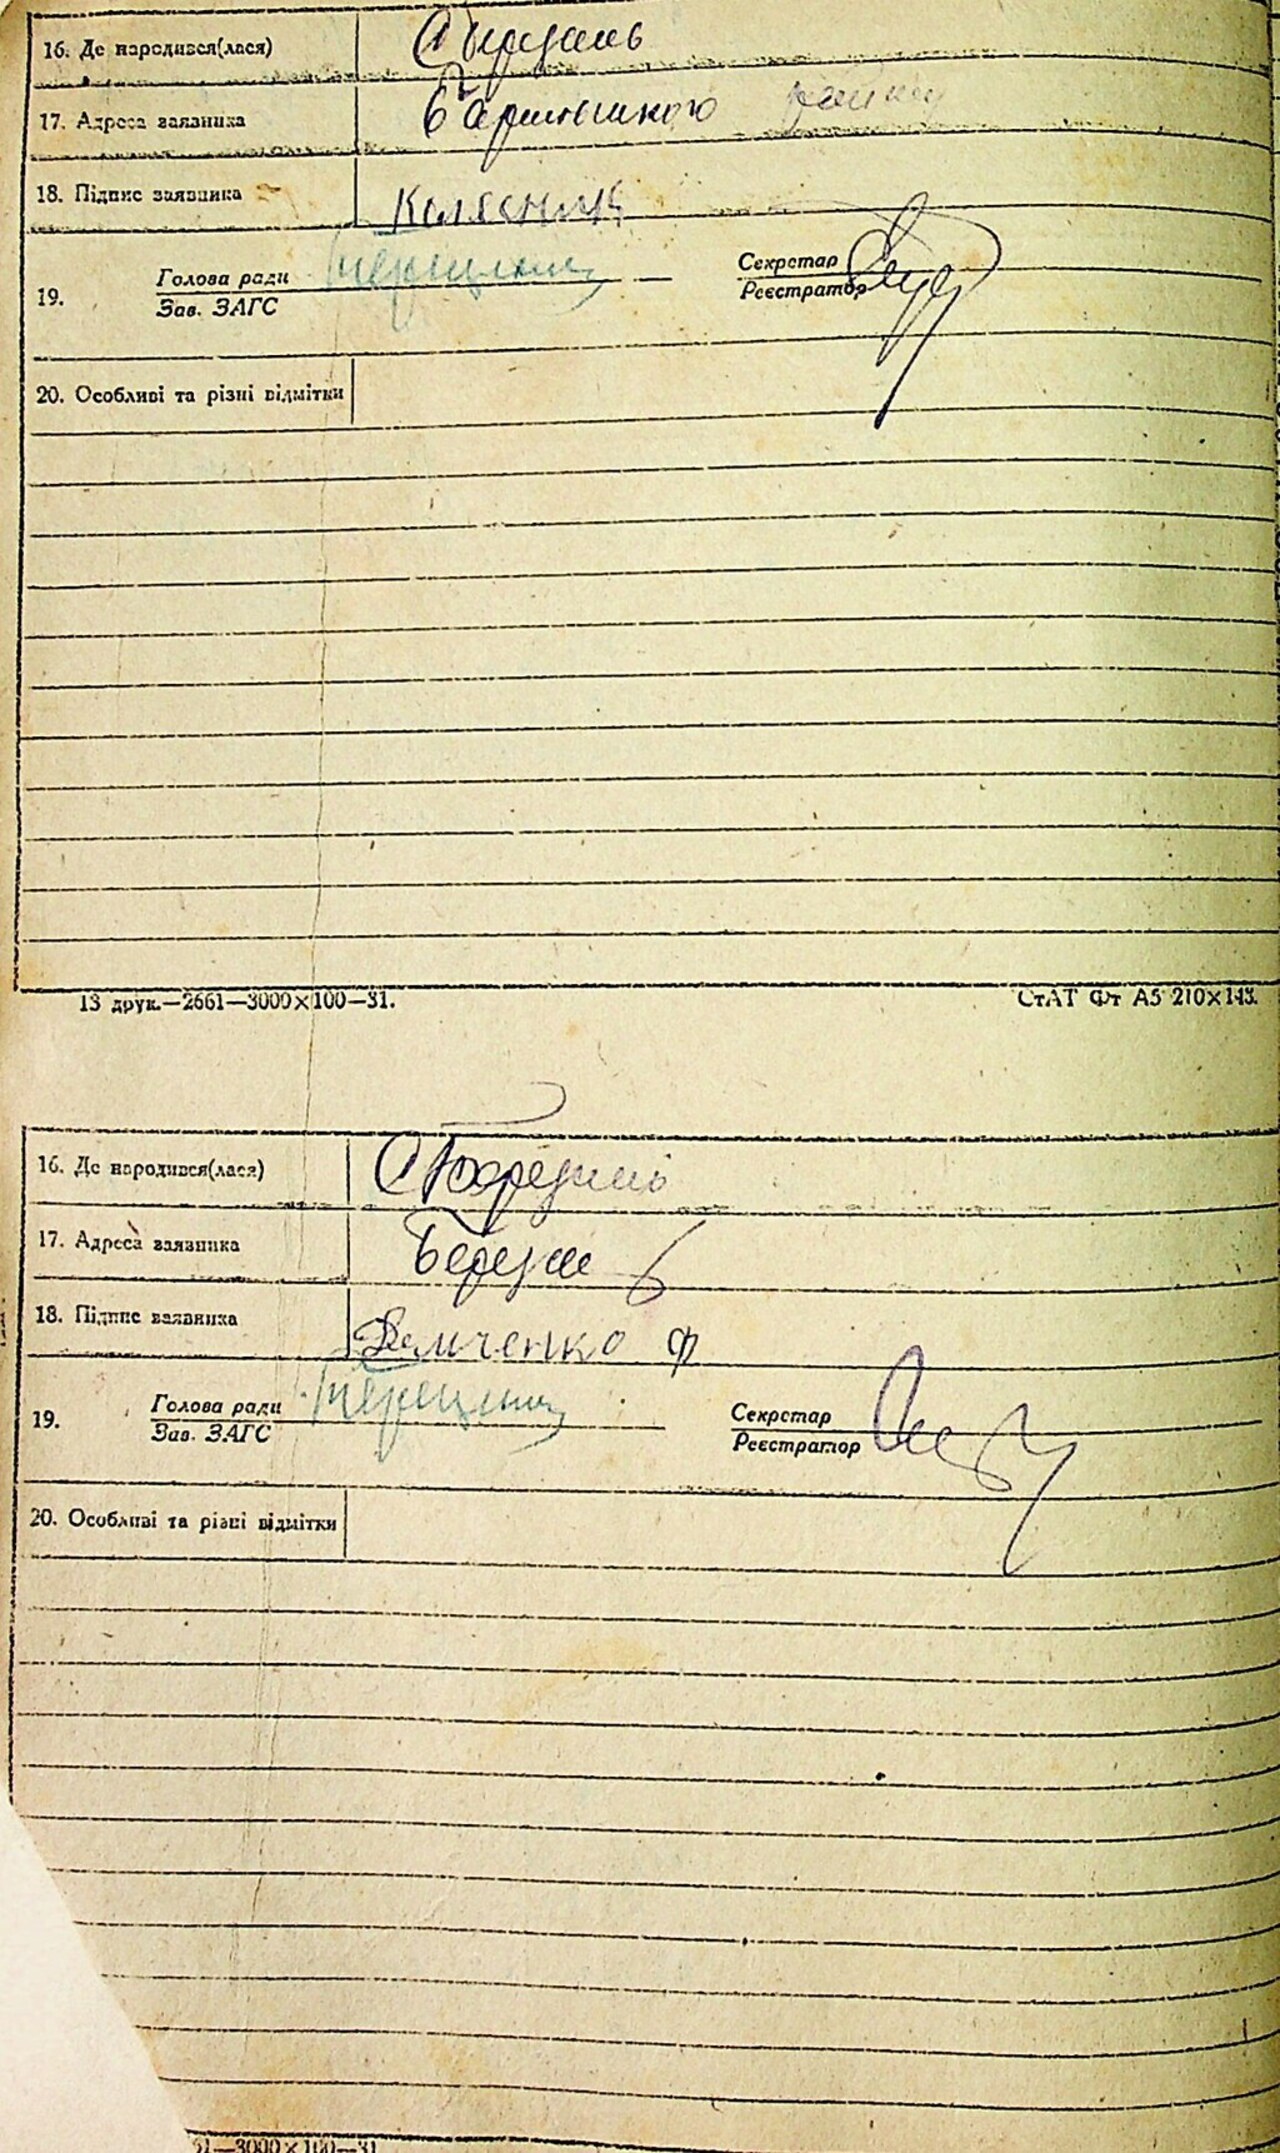 16. Де народився(лася)
17. Адреса заявника
18. Підпис заявника Колесник
Голова ради Терещенко Секретар
19.
Зав. ЗАГС Реєстратор
20. Особливі та різні відмітки
13 друк.—2661—3000×100—31. СтАТ Фт А5 210×143.
16. Де народився(лася) С Березань
17. Адреса заявника Березань
18. Підпис заявника Демченко Ф
Голова ради Терещенко Секретар
19.
Зав. ЗАГС Реєстратор
20. Особливі та різні відмітки
61—3000×100—31